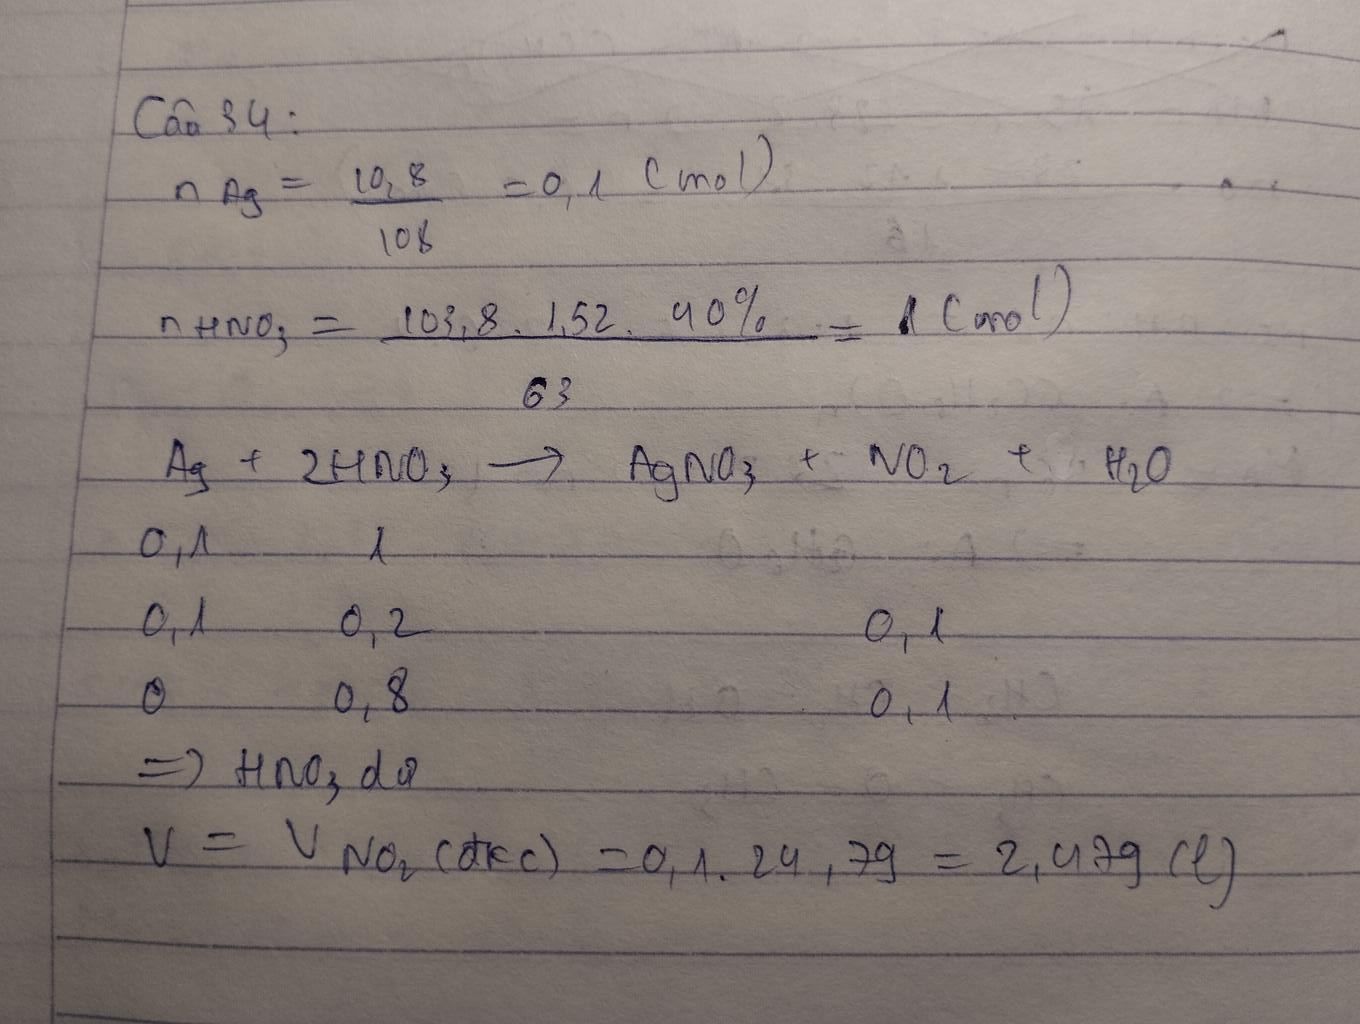 Câu 34:
n Ag = 10,8 / 108 = 0,1 (mol)
n HNO₃ = 103,8 . 1,52 . 40% / 63 = 1 (mol)
Ag + 2HNO₃ → AgNO₃ + NO₂ + H₂O
0,1 1
0,1 0,2 0,1
0 0,8 0,1
=> HNO₃ dư
V = V NO₂ (đkc) = 0,1 . 24,79 = 2,479 (l)